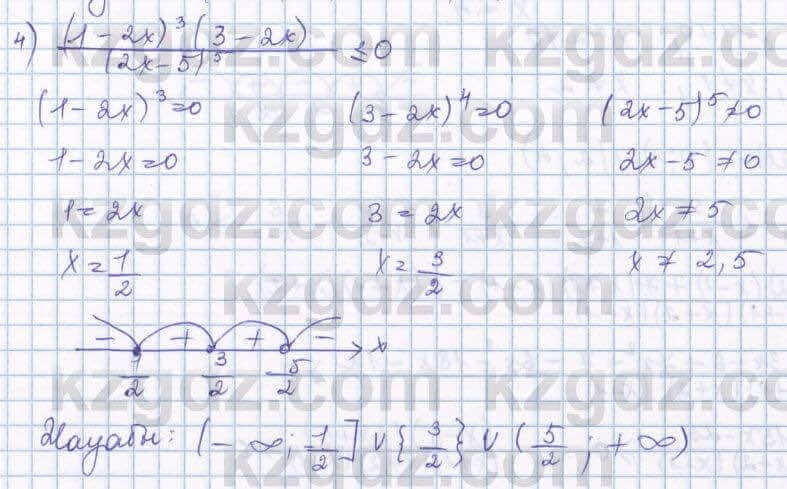 4) (1 - 2x)³(3 - 2x) / (2x - 5)⁵ ≤ 0
(1 - 2x)³ = 0 (3 - 2x)⁴ = 0 (2x - 5)⁵ ≠ 0
1 - 2x = 0 3 - 2x = 0 2x - 5 ≠ 0
1 = 2x 3 = 2x 2x ≠ 5
x = 1/2 x = 3/2 x ≠ 2,5
- + + - x
1/2 3/2 5/2
Жауабы: (-∞; 1/2] ∪ {3/2} ∪ (5/2; +∞)
kzgdz.com kzgdz.com
kzgdz.com
kzgdz.com kzgdz.com
kzgdz.com
kzgdz.com kzgdz.com
kzgdz.com